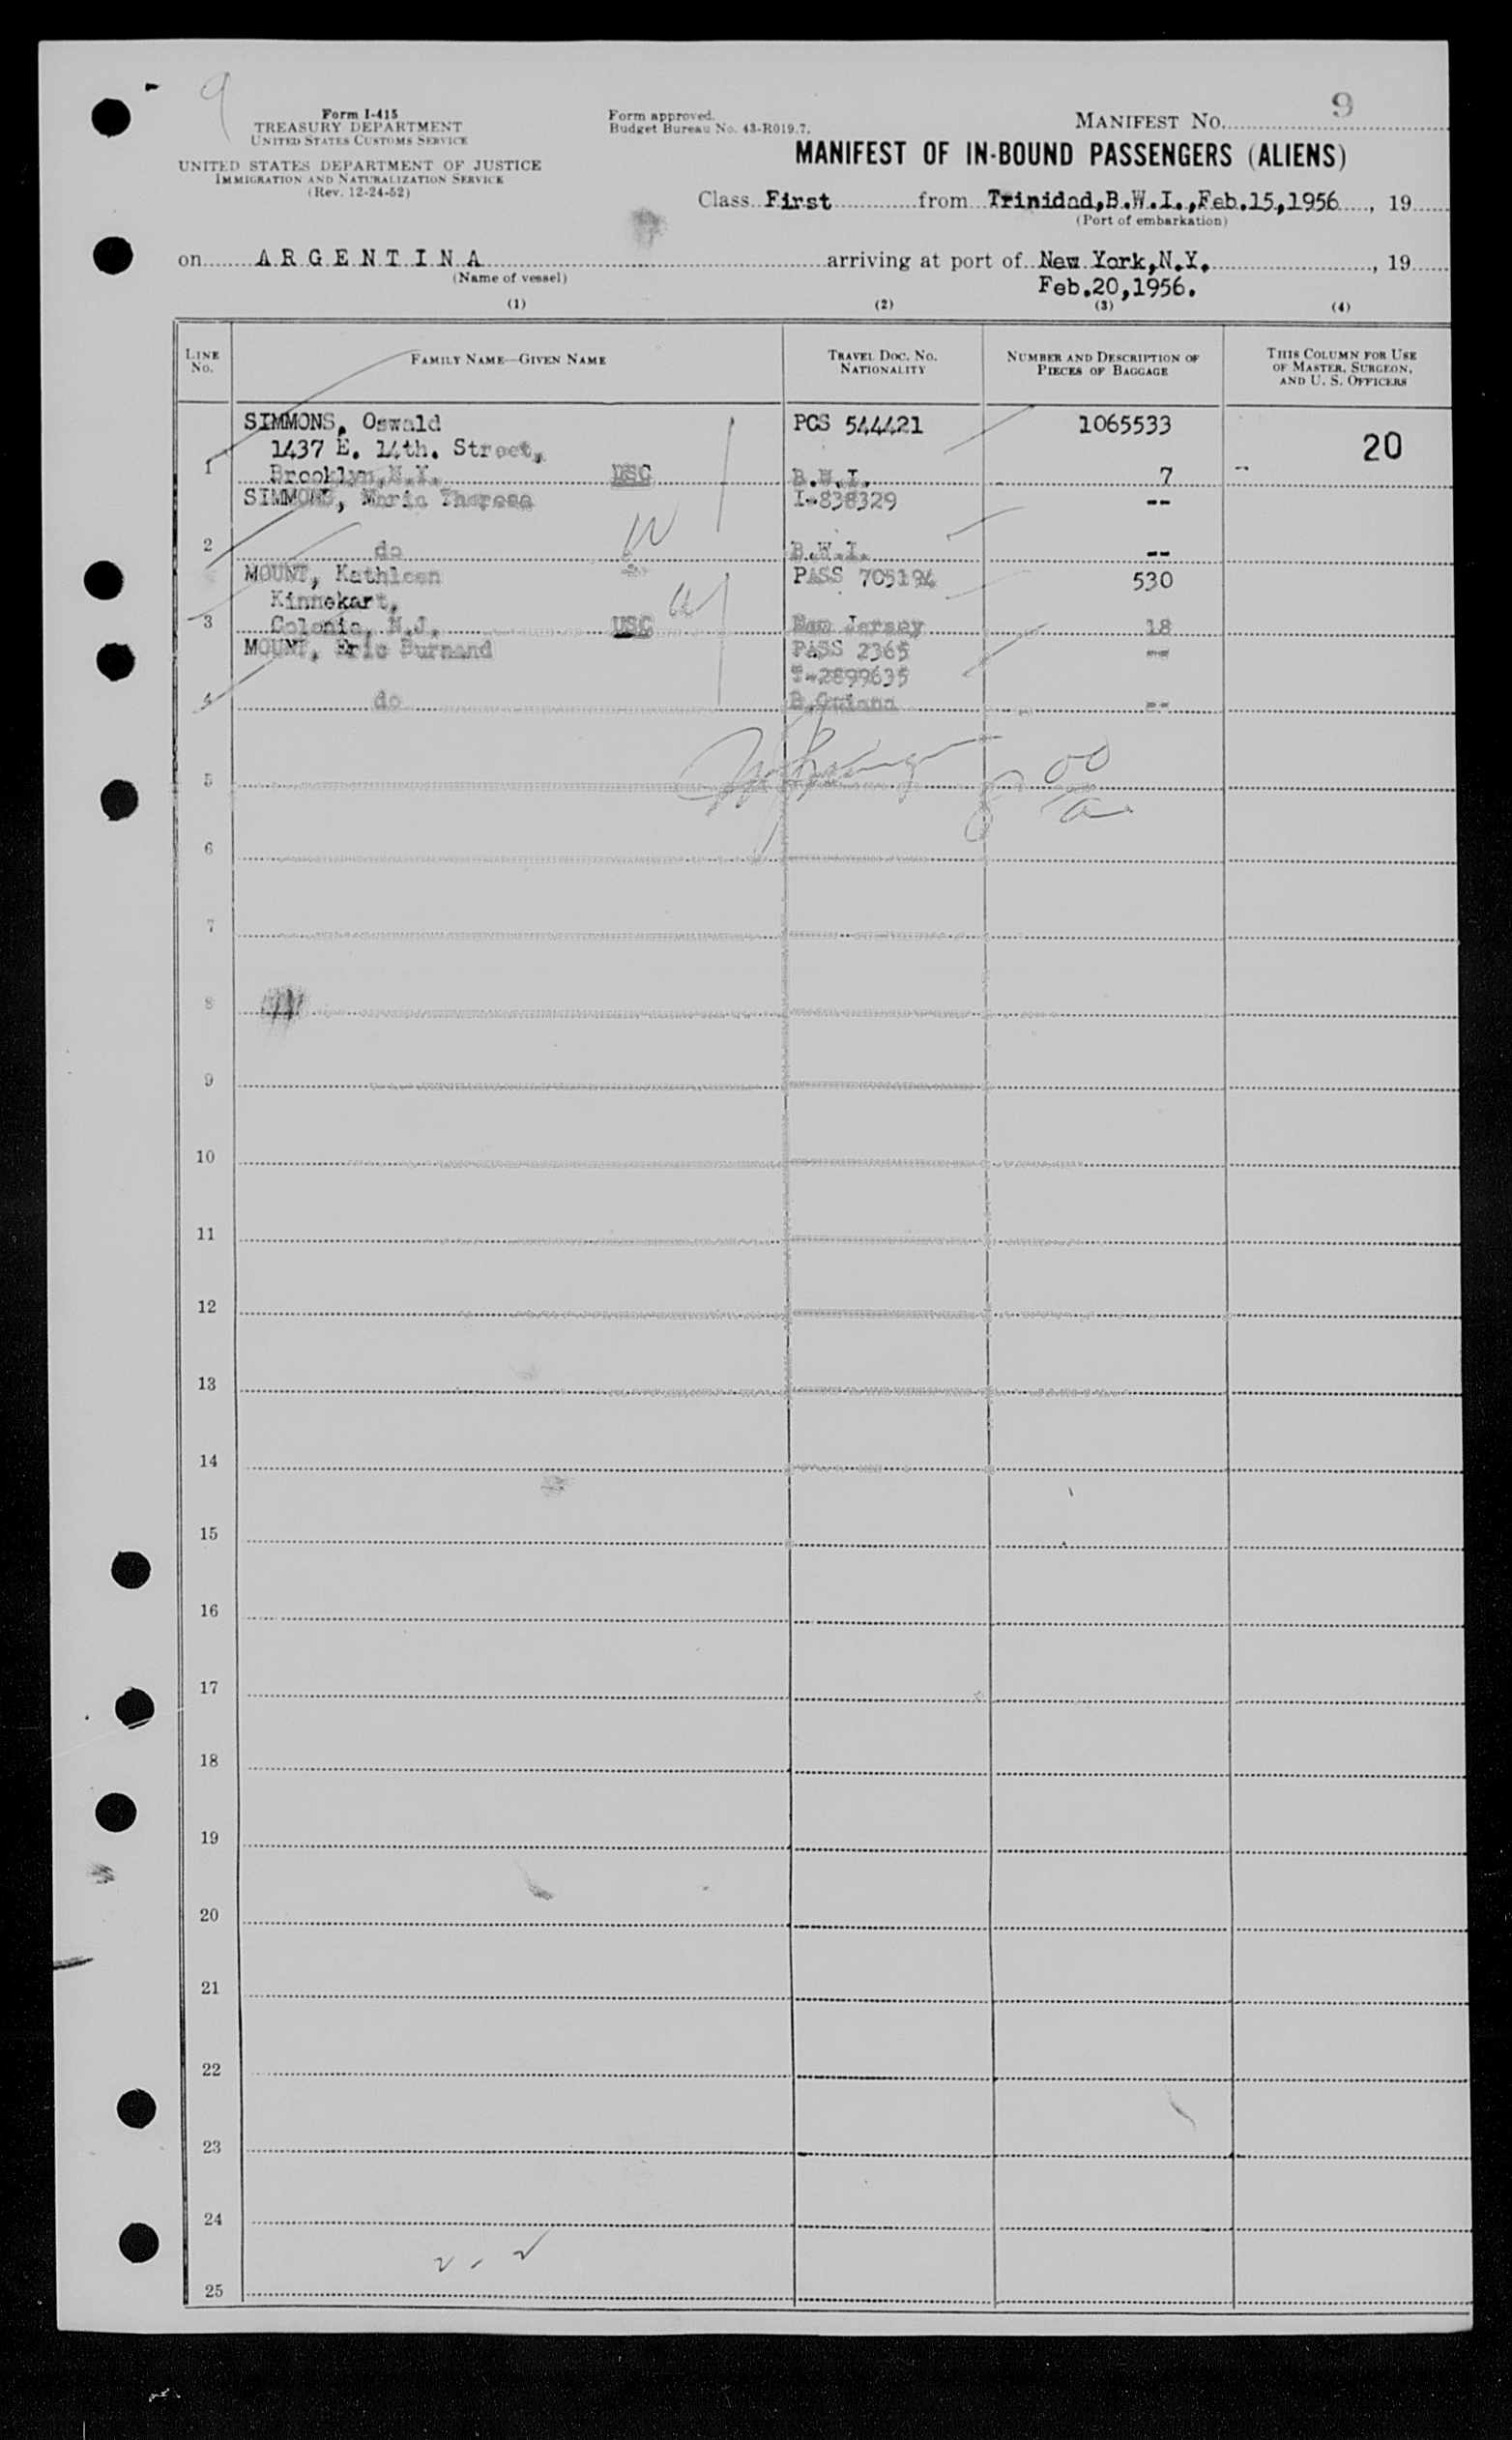 9
Form I-415
TREASURY DEPARTMENT
UNITED STATES CUSTOMS SERVICE
UNITED STATES DEPARTMENT OF JUSTICE
IMMIGRATION AND NATURALIZATION SERVICE
(Rev. 12-24-52)
Form approved.
Budget Bureau No. 43-R019.7.
MANIFEST NO. 9
MANIFEST OF IN-BOUND PASSENGERS (ALIENS)
Class First from Trinidad,B.W.I.,Feb.15,1956, 19
(Port of embarkation)
on ARGENTINA arriving at port of New York,N.Y., 19
(Name of vessel)
Feb.20,1956.
(1) (2) (3) (4)
LINE NO. FAMILY NAME—GIVEN NAME TRAVEL DOC. NO. NATIONALITY NUMBER AND DESCRIPTION OF PIECES OF BAGGAGE THIS COLUMN FOR USE OF MASTER, SURGEON, AND U. S. OFFICERS
SIMMONS, Oswald PCS 544421 1065533 20
1437 E. 14th. Street,
1 Brooklyn,N.Y. USC B.W.I. 7 --
SIMMONS, Maria Theresa I-838329 --
2 do B.W.I. --
MOUNT, Kathleen PASS 705194 530
Kinnekart,
3 Colonia, N.J. USC New Jersey 18
MOUNT, Eric Burnand PASS 2365 --
T-2899635
4 do B.Guiana --
5
6
7
8
9
10
11
12
13
14
15
16
17
18
19
20
21
22
23
24
25